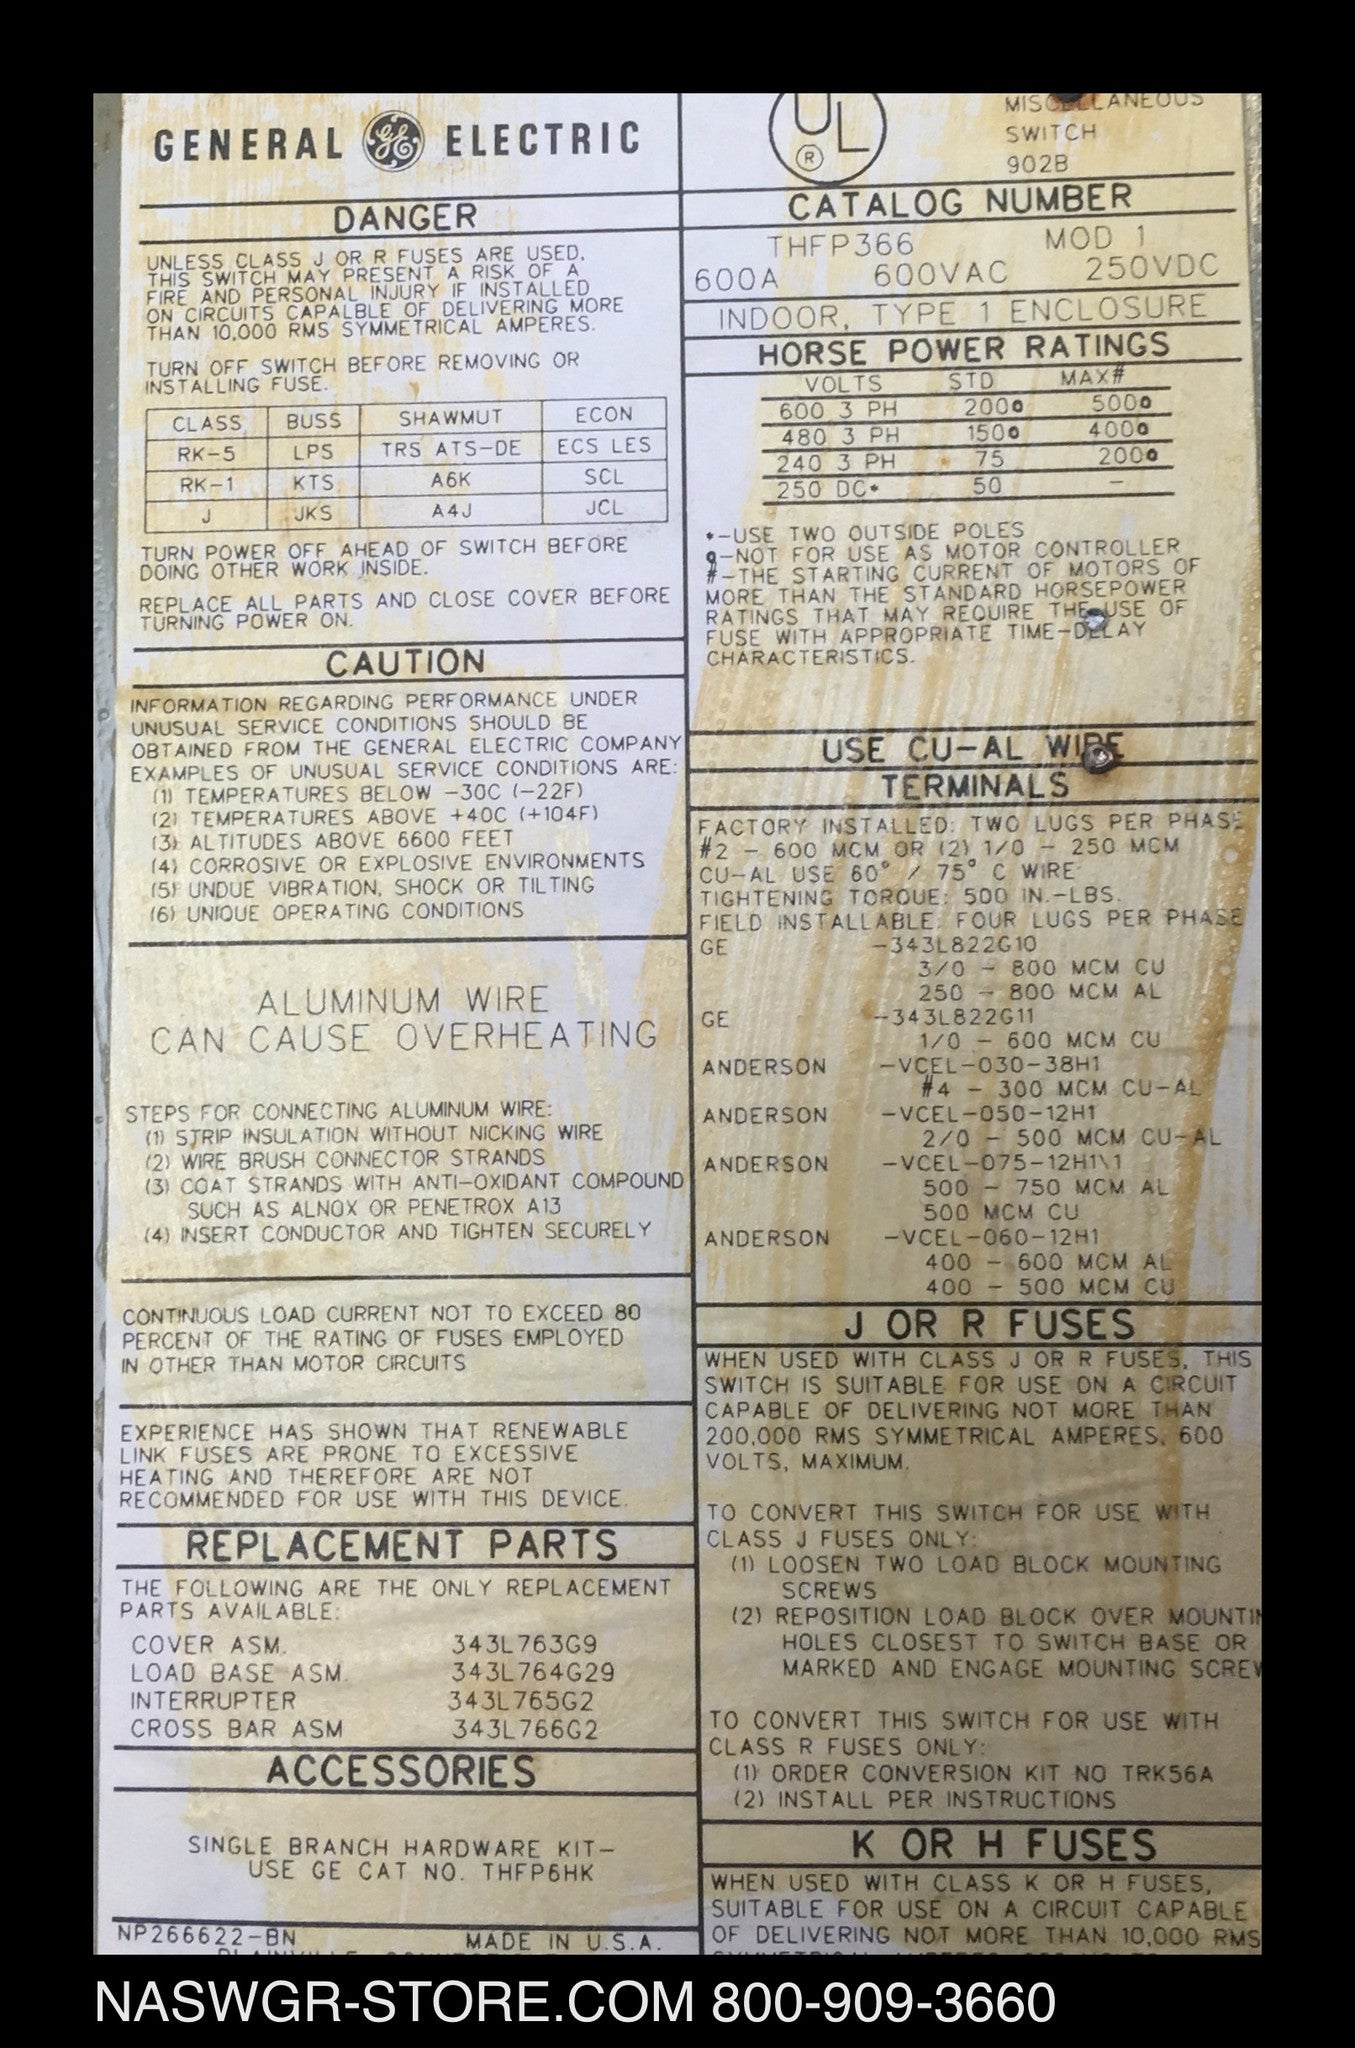 GENERAL GE ELECTRIC
DANGER
UNLESS CLASS J OR R FUSES ARE USED,
THIS SWITCH MAY PRESENT A RISK OF A
FIRE AND PERSONAL INJURY IF INSTALLED
ON CIRCUITS CAPALBLE OF DELIVERING MORE
THAN 10,000 RMS SYMMETRICAL AMPERES.
TURN OFF SWITCH BEFORE REMOVING OR
INSTALLING FUSE.
CLASS BUSS SHAWMUT ECON
RK-5 LPS TRS ATS-DE ECS LES
RK-1 KTS A6K SCL
J JKS A4J JCL
TURN POWER OFF AHEAD OF SWITCH BEFORE
DOING OTHER WORK INSIDE.
REPLACE ALL PARTS AND CLOSE COVER BEFORE
TURNING POWER ON.
CAUTION
INFORMATION REGARDING PERFORMANCE UNDER
UNUSUAL SERVICE CONDITIONS SHOULD BE
OBTAINED FROM THE GENERAL ELECTRIC COMPANY
EXAMPLES OF UNUSUAL SERVICE CONDITIONS ARE:
(1) TEMPERATURES BELOW -30C (-22F)
(2) TEMPERATURES ABOVE +40C (+104F)
(3) ALTITUDES ABOVE 6600 FEET
(4) CORROSIVE OR EXPLOSIVE ENVIRONMENTS
(5) UNDUE VIBRATION, SHOCK OR TILTING
(6) UNIQUE OPERATING CONDITIONS
ALUMINUM WIRE
CAN CAUSE OVERHEATING
STEPS FOR CONNECTING ALUMINUM WIRE:
(1) STRIP INSULATION WITHOUT NICKING WIRE
(2) WIRE BRUSH CONNECTOR STRANDS
(3) COAT STRANDS WITH ANTI-OXIDANT COMPOUND
SUCH AS ALNOX OR PENETROX A13
(4) INSERT CONDUCTOR AND TIGHTEN SECURELY
CONTINUOUS LOAD CURRENT NOT TO EXCEED 80
PERCENT OF THE RATING OF FUSES EMPLOYED
IN OTHER THAN MOTOR CIRCUITS
EXPERIENCE HAS SHOWN THAT RENEWABLE
LINK FUSES ARE PRONE TO EXCESSIVE
HEATING AND THEREFORE ARE NOT
RECOMMENDED FOR USE WITH THIS DEVICE.
REPLACEMENT PARTS
THE FOLLOWING ARE THE ONLY REPLACEMENT
PARTS AVAILABLE:
COVER ASM. 343L763G9
LOAD BASE ASM. 343L764G29
INTERRUPTER 343L765G2
CROSS BAR ASM 343L766G2
ACCESSORIES
SINGLE BRANCH HARDWARE KIT-
USE GE CAT NO. THFP6HK
NP266622-BN MADE IN U.S.A.
UL ®
MISCELLANEOUS
SWITCH
902B
CATALOG NUMBER
THFP366 MOD 1
600A 600VAC 250VDC
INDOOR, TYPE 1 ENCLOSURE
HORSE POWER RATINGS
VOLTS STD MAX#
600 3 PH 200@ 500@
480 3 PH 150@ 400@
240 3 PH 75 200@
250 DC* 50 -
*-USE TWO OUTSIDE POLES
@-NOT FOR USE AS MOTOR CONTROLLER
#-THE STARTING CURRENT OF MOTORS OF
MORE THAN THE STANDARD HORSEPOWER
RATINGS THAT MAY REQUIRE THE USE OF
FUSE WITH APPROPRIATE TIME-DELAY
CHARACTERISTICS.
USE CU-AL WIRE
TERMINALS
FACTORY INSTALLED: TWO LUGS PER PHASE
#2 - 600 MCM OR (2) 1/0 - 250 MCM
CU-AL USE 60° / 75° C WIRE
TIGHTENING TORQUE: 500 IN.-LBS.
FIELD INSTALLABLE: FOUR LUGS PER PHASE
GE -343L822G10
3/0 - 800 MCM CU
250 - 800 MCM AL
GE -343L822G11
1/0 - 600 MCM CU
ANDERSON -VCEL-030-38H1
#4 - 300 MCM CU-AL
ANDERSON -VCEL-050-12H1
2/0 - 500 MCM CU-AL
ANDERSON -VCEL-075-12H1\1
500 - 750 MCM AL
500 MCM CU
ANDERSON -VCEL-060-12H1
400 - 600 MCM AL
400 - 500 MCM CU
J OR R FUSES
WHEN USED WITH CLASS J OR R FUSES, THIS
SWITCH IS SUITABLE FOR USE ON A CIRCUIT
CAPABLE OF DELIVERING NOT MORE THAN
200,000 RMS SYMMETRICAL AMPERES, 600
VOLTS, MAXIMUM.
TO CONVERT THIS SWITCH FOR USE WITH
CLASS J FUSES ONLY:
(1) LOOSEN TWO LOAD BLOCK MOUNTING
SCREWS
(2) REPOSITION LOAD BLOCK OVER MOUNTIN
HOLES CLOSEST TO SWITCH BASE OR
MARKED AND ENGAGE MOUNTING SCREW
TO CONVERT THIS SWITCH FOR USE WITH
CLASS R FUSES ONLY:
(1) ORDER CONVERSION KIT NO TRK56A
(2) INSTALL PER INSTRUCTIONS
K OR H FUSES
WHEN USED WITH CLASS K OR H FUSES,
SUITABLE FOR USE ON A CIRCUIT CAPABLE
OF DELIVERING NOT MORE THAN 10,000 RMS
NASWGR-STORE.COM 800-909-3660